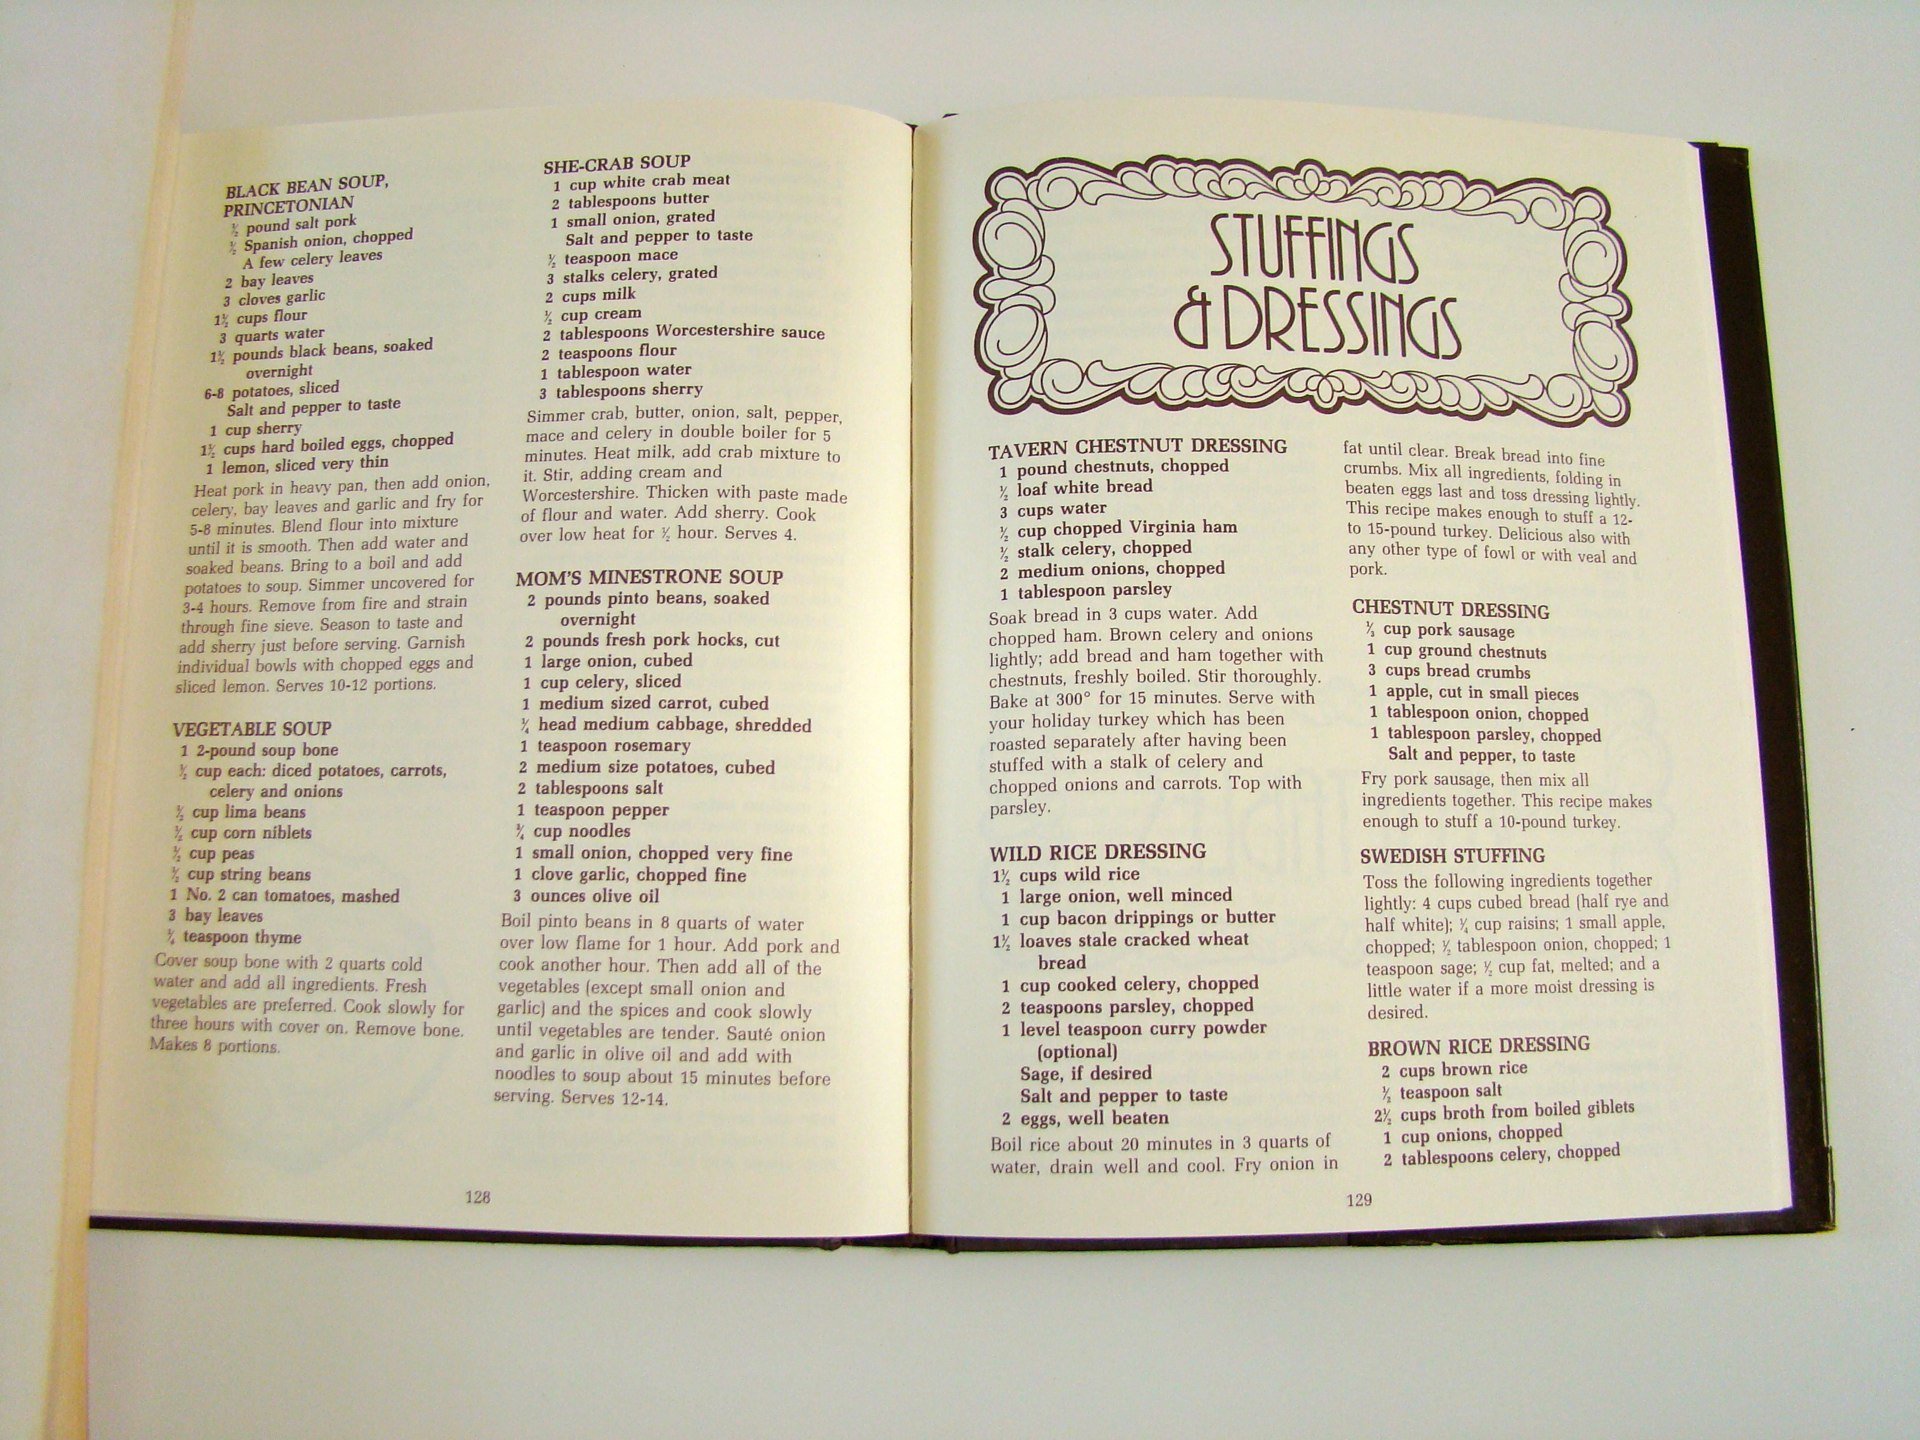 BLACK BEAN SOUP,
PRINCETONIAN
½ pound salt pork
½ Spanish onion, chopped
A few celery leaves
2 bay leaves
3 cloves garlic
1½ cups flour
3 quarts water
1½ pounds black beans, soaked
overnight
6-8 potatoes, sliced
Salt and pepper to taste
1 cup sherry
1½ cups hard boiled eggs, chopped
1 lemon, sliced very thin
Heat pork in heavy pan, then add onion,
celery, bay leaves and garlic and fry for
5-8 minutes. Blend flour into mixture
until it is smooth. Then add water and
soaked beans. Bring to a boil and add
potatoes to soup. Simmer uncovered for
3-4 hours. Remove from fire and strain
through fine sieve. Season to taste and
add sherry just before serving. Garnish
individual bowls with chopped eggs and
sliced lemon. Serves 10-12 portions.
VEGETABLE SOUP
1 2-pound soup bone
½ cup each: diced potatoes, carrots,
celery and onions
½ cup lima beans
½ cup corn niblets
½ cup peas
½ cup string beans
1 No. 2 can tomatoes, mashed
3 bay leaves
¼ teaspoon thyme
Cover soup bone with 2 quarts cold
water and add all ingredients. Fresh
vegetables are preferred. Cook slowly for
three hours with cover on. Remove bone.
Makes 8 portions.
SHE-CRAB SOUP
1 cup white crab meat
2 tablespoons butter
1 small onion, grated
Salt and pepper to taste
½ teaspoon mace
3 stalks celery, grated
2 cups milk
½ cup cream
2 tablespoons Worcestershire sauce
2 teaspoons flour
1 tablespoon water
3 tablespoons sherry
Simmer crab, butter, onion, salt, pepper,
mace and celery in double boiler for 5
minutes. Heat milk, add crab mixture to
it. Stir, adding cream and
Worcestershire. Thicken with paste made
of flour and water. Add sherry. Cook
over low heat for ½ hour. Serves 4.
MOM'S MINESTRONE SOUP
2 pounds pinto beans, soaked
overnight
2 pounds fresh pork hocks, cut
1 large onion, cubed
1 cup celery, sliced
1 medium sized carrot, cubed
¼ head medium cabbage, shredded
1 teaspoon rosemary
2 medium size potatoes, cubed
2 tablespoons salt
1 teaspoon pepper
cup noodles
1 small onion, chopped very fine
1 clove garlic, chopped fine
3 ounces olive oil
Boil pinto beans in 8 quarts of water
over low flame for 1 hour. Add pork and
cook another hour. Then add all of the
vegetables (except small onion and
garlic) and the spices and cook slowly
until vegetables are tender. Sauté onion
and garlic in olive oil and add with
noodles to soup about 15 minutes before
serving. Serves 12-14.
128
STUFFINGS
& DRESSINGS
TAVERN CHESTNUT DRESSING
1 pound chestnuts, chopped
½ loaf white bread
3 cups water
½ cup chopped Virginia ham
½ stalk celery, chopped
2 medium onions, chopped
1 tablespoon parsley
Soak bread in 3 cups water. Add
chopped ham. Brown celery and onions
lightly; add bread and ham together with
chestnuts, freshly boiled. Stir thoroughly.
Bake at 300° for 15 minutes. Serve with
your holiday turkey which has been
roasted separately after having been
stuffed with a stalk of celery and
chopped onions and carrots. Top with
parsley.
WILD RICE DRESSING
1½ cups wild rice
1 large onion, well minced
1 cup bacon drippings or butter
1½ loaves stale cracked wheat
bread
1 cup cooked celery, chopped
2 teaspoons parsley, chopped
1 level teaspoon curry powder
(optional)
Sage, if desired
Salt and pepper to taste
2 eggs, well beaten
Boil rice about 20 minutes in 3 quarts of
water, drain well and cool. Fry onion in
fat until clear. Break bread into fine
crumbs. Mix all ingredients, folding in
beaten eggs last and toss dressing lightly.
This recipe makes enough to stuff a 12-
to 15-pound turkey. Delicious also with
any other type of fowl or with veal and
pork.
CHESTNUT DRESSING
cup pork sausage
1 cup ground chestnuts
3 cups bread crumbs
1 apple, cut in small pieces
1 tablespoon onion, chopped
1 tablespoon parsley, chopped
Salt and pepper, to taste
Fry pork sausage, then mix all
ingredients together. This recipe makes
enough to stuff a 10-pound turkey.
SWEDISH STUFFING
Toss the following ingredients together
lightly: 4 cups cubed bread (half rye and
half white); ¼ cup raisins; 1 small apple,
chopped; ½ tablespoon onion, chopped; 1
teaspoon sage; ½ cup fat, melted; and a
little water if a more moist dressing is
desired.
BROWN RICE DRESSING
2 cups brown rice
½ teaspoon salt
2½ cups broth from boiled giblets
1 cup onions, chopped
2 tablespoons celery, chopped
129